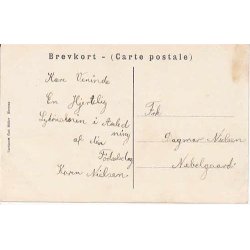 Brevkort - (Carte postale)
Kære Veninde
En Hjertelig
Lykønskning i Anled
ning
af din
Fødselsdag
Karen Nielsen
Frk
Dagmar Nielsen
Næbelgaard